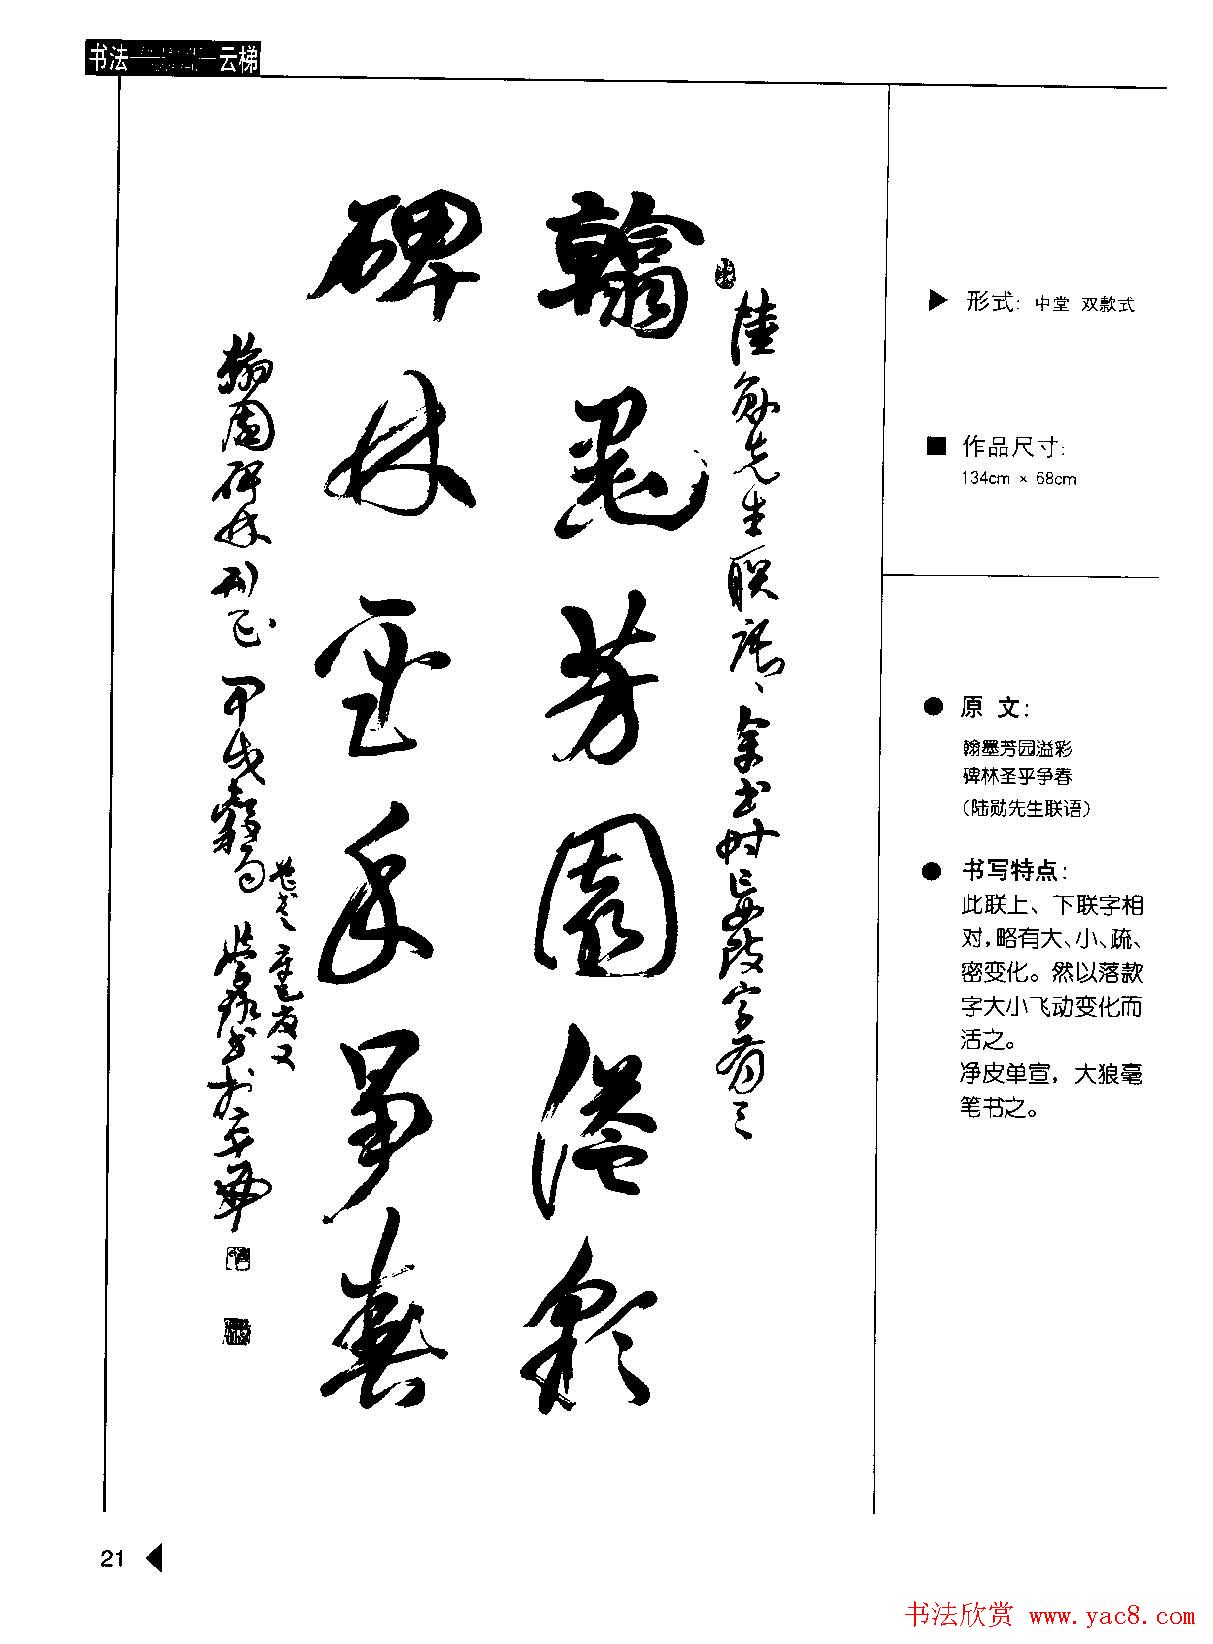 书法——云梯
翰墨芳园溢彩
碑林圣乎争春
陆勋先生联语
余书时
段字
翰园碑林
正
甲戌
书于
形式：中堂 双款式
作品尺寸：
134cm × 68cm
原 文：
翰墨芳园溢彩
碑林圣乎争春
（陆勋先生联语）
书写特点：
此联上、下联字相
对，略有大、小、疏、
密变化。然以落款
字大小飞动变化而
活之。
净皮单宣，大狼毫
笔书之。
21
书法欣赏 www.yac8.com